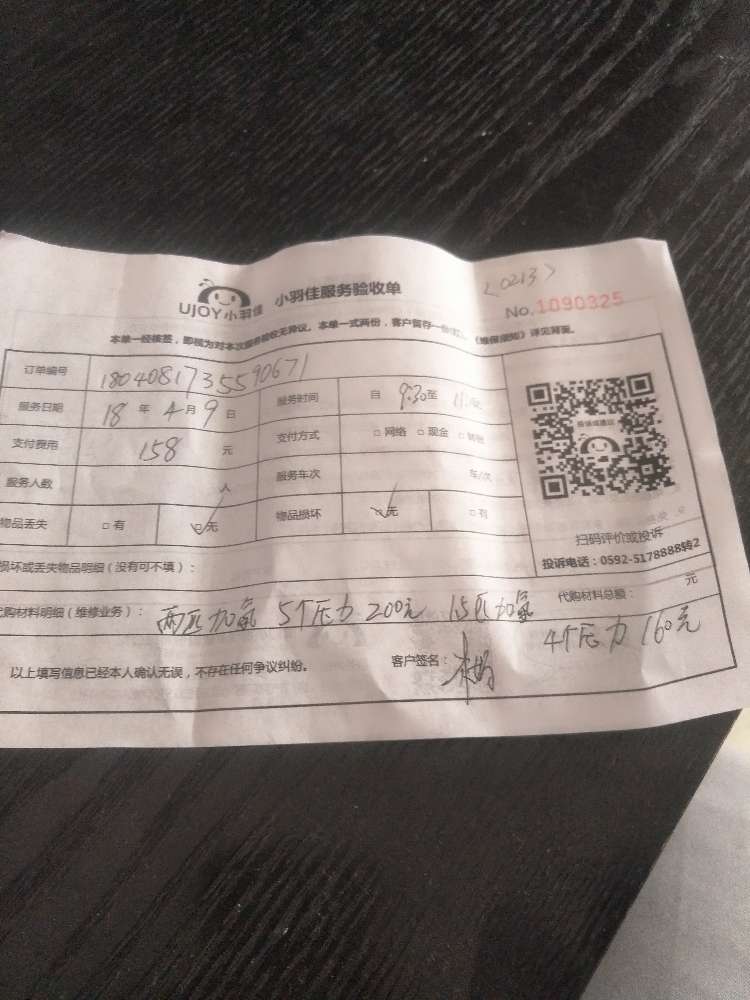 <0213>
UJOY小羽佳 小羽佳服务验收单
No.1090325
本单一经核签，即视为对本次服务验收无异议。本单一式两份，客户留存一份 《维保须知》详见背面。
订单编号 1804081735590671
服务日期 18 年 4 月 9 日 服务时间 自 9:30 至
支付费用 158 元 支付方式 □ 网络 □ 现金 □ 转账
服务人数 人 服务车次 车/次
物品丢失 □ 有 ☑ 无 物品损坏 ☑ 无 □ 有
投诉或建议
扫码评价或投诉
投诉电话：0592-5178888转2
损坏或丢失物品明细（没有可不填）：
代购材料明细（维修业务）： 两匹加氟 5个压力 200元 1.5匹加氟 代购材料总额： 元
4个压力 160元
以上填写信息已经本人确认无误，不存在任何争议纠纷。 客户签名：